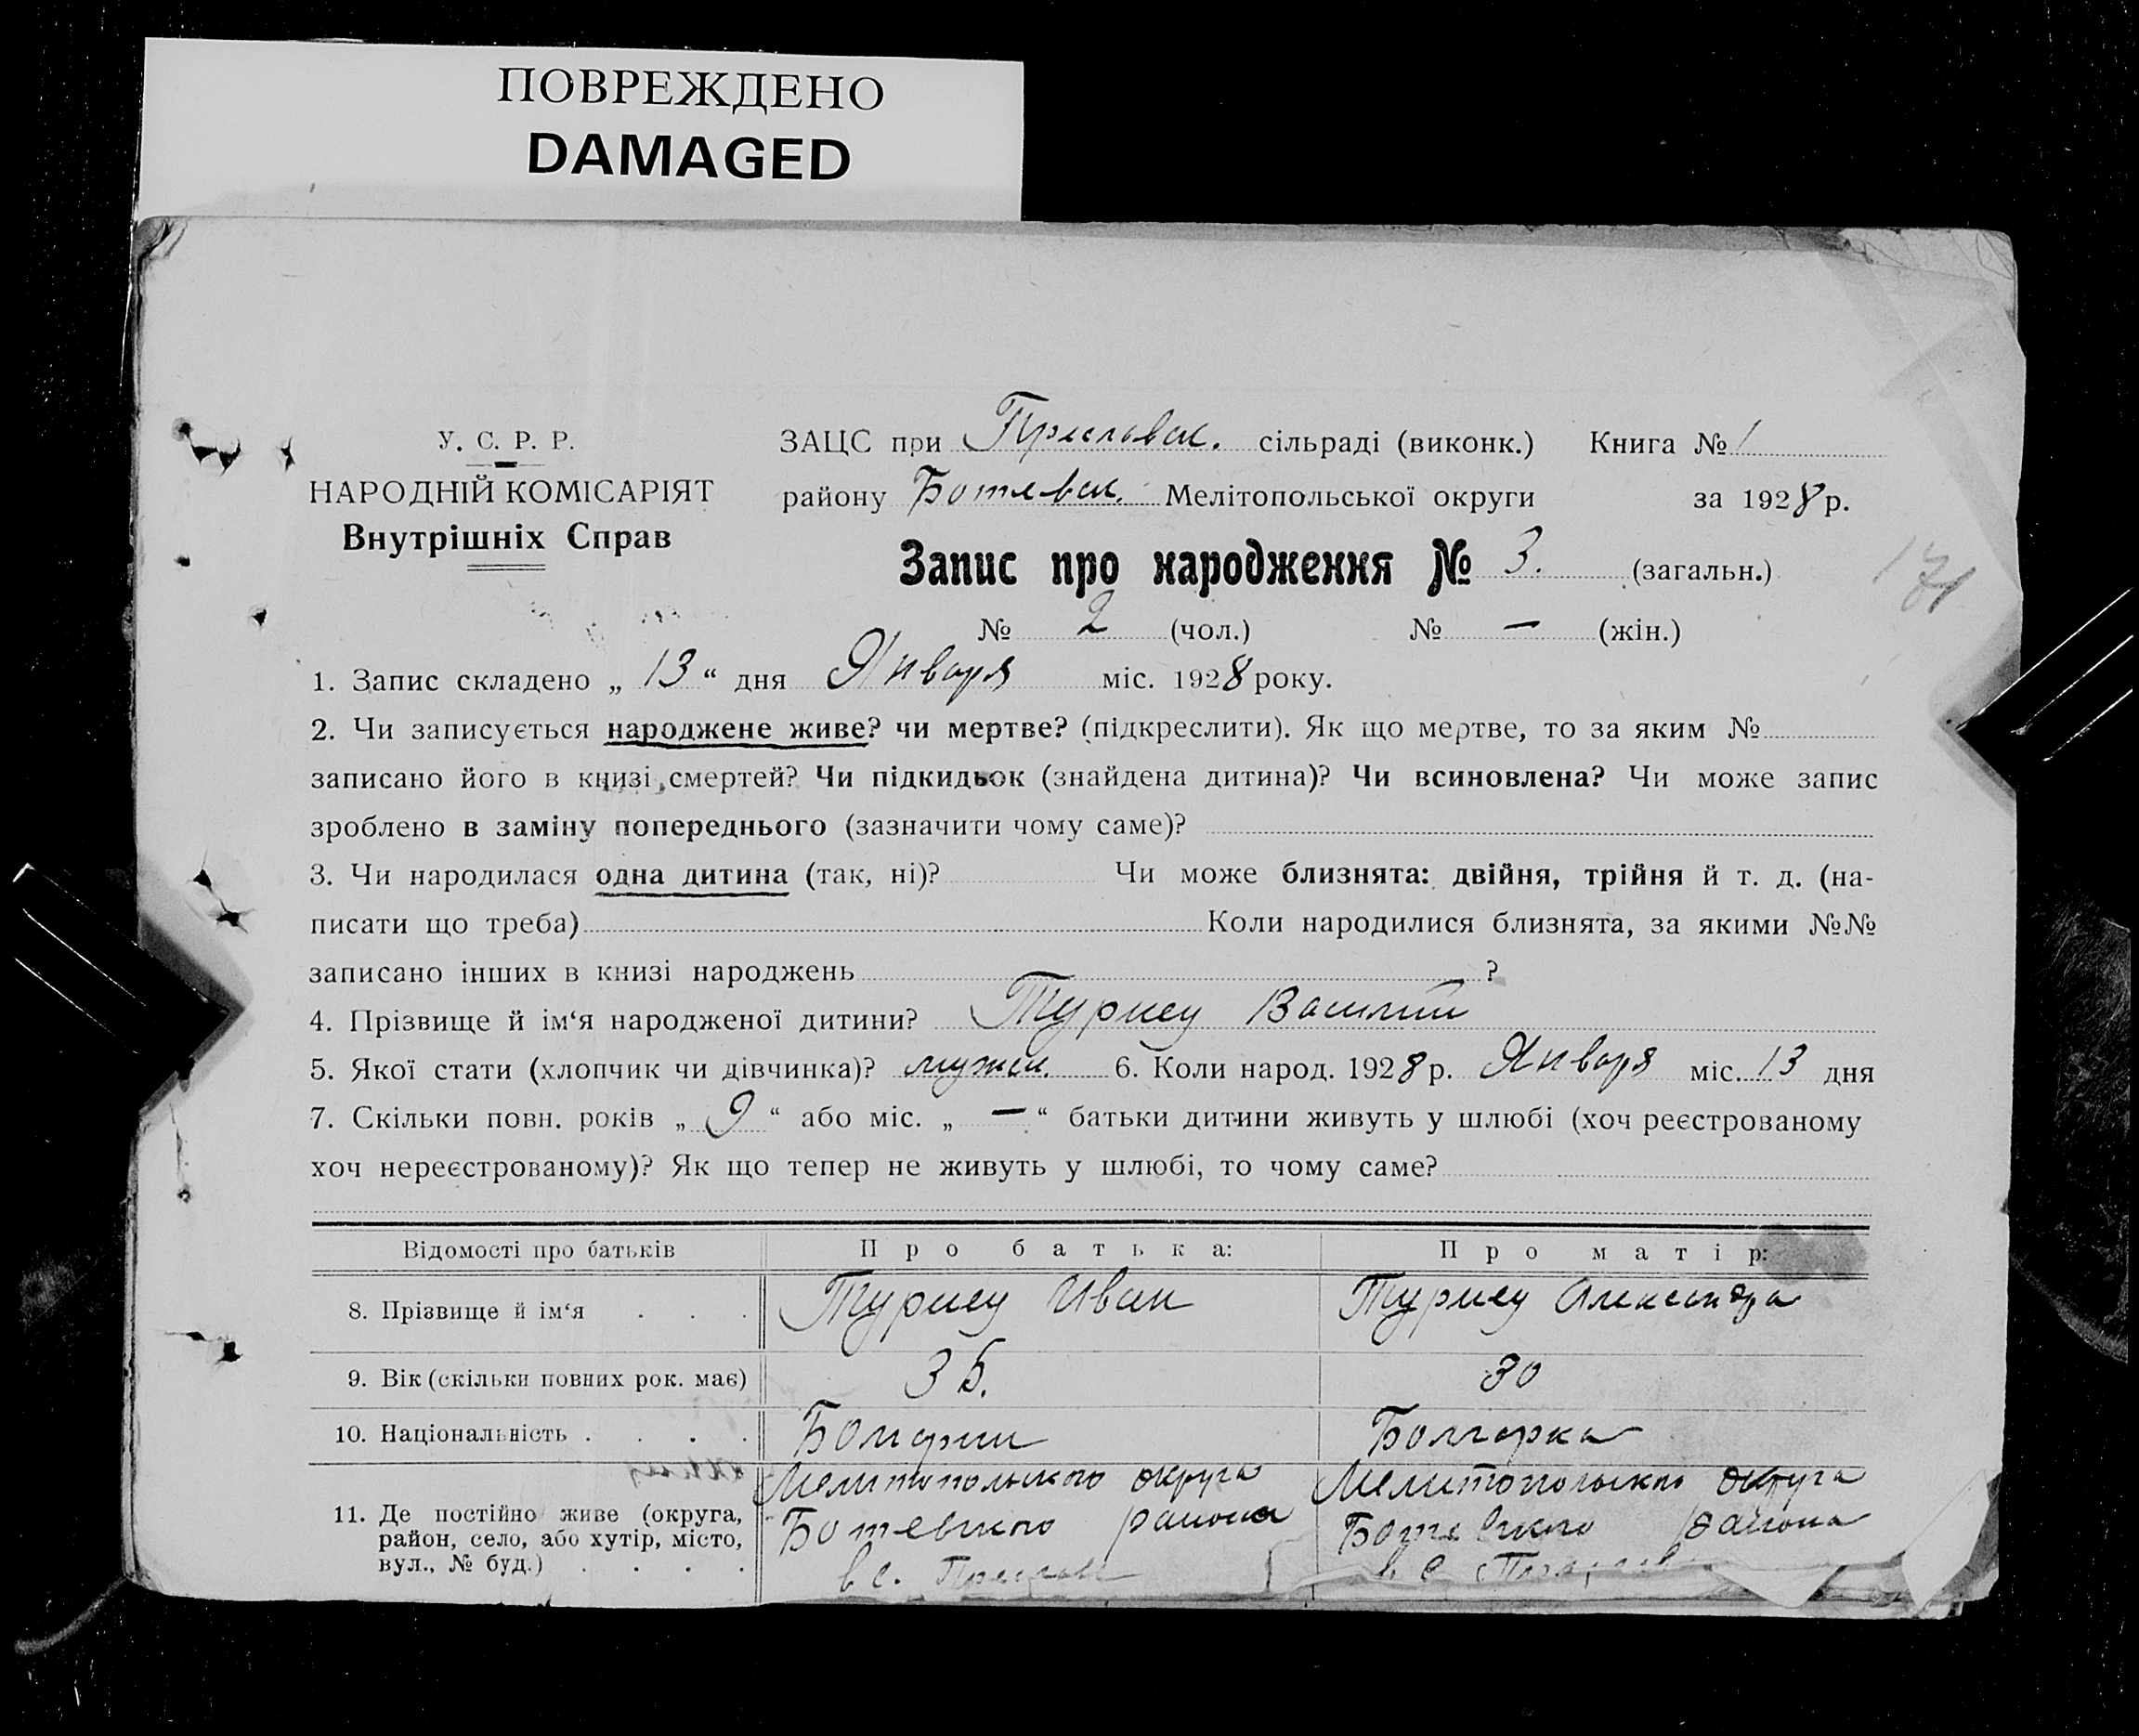 ПОВРЕЖДЕНО
DAMAGED
У. С. Р. Р.
НАРОДНІЙ КОМІСАРІЯТ
Внутрішніх Справ
ЗАЦС при Преславск. сільраді (виконк.) Книга № 1
району Ботевск. Мелітопольської округи за 1928 р.
Запис про народження № 3. (загальн.)
171
№ 2 (чол.) № — (жін.)
1. Запис складено „ 13 “ дня Января міс. 1928 року.
2. Чи записується народжене живе? чи мертве? (підкреслити). Як що мертве, то за яким №
записано його в книзі смертей? Чи підкидьок (знайдена дитина)? Чи всиновлена? Чи може запис
зроблено в заміну попереднього (зазначити чому саме)?
3. Чи народилася одна дитина (так, ні)? Чи може близнята: двійня, трійня й т. д. (на-
писати що треба) Коли народилися близнята, за якими №№
записано інших в книзі народжень ?
4. Прізвище й ім‘я народженої дитини? Турлеу Василий
5. Якої стати (хлопчик чи дівчинка)? мужск. 6. Коли народ. 1928 р. Января міс. 13 дня
7. Скільки повн. років „ 9 “ або міс. „ — “ батьки дитини живуть у шлюбі (хоч реєстрованому
хоч нереєстрованому)? Як що тепер не живуть у шлюбі, то чому саме?
Відомості про батьків Про батька: Про матір:
8. Прізвище й ім‘я . . . Иван Александра
9. Вік (скільки повних рок. має) 35. 30
10. Національність . . . . Болгарин Болгарка
11. Де постійно живе (округа, район, село, або хутір, місто, вул., № буд.) . . . .
Мелитопольского округа Мелитопольского округа
Ботевского района Ботевского района
в с. Преслав в с.